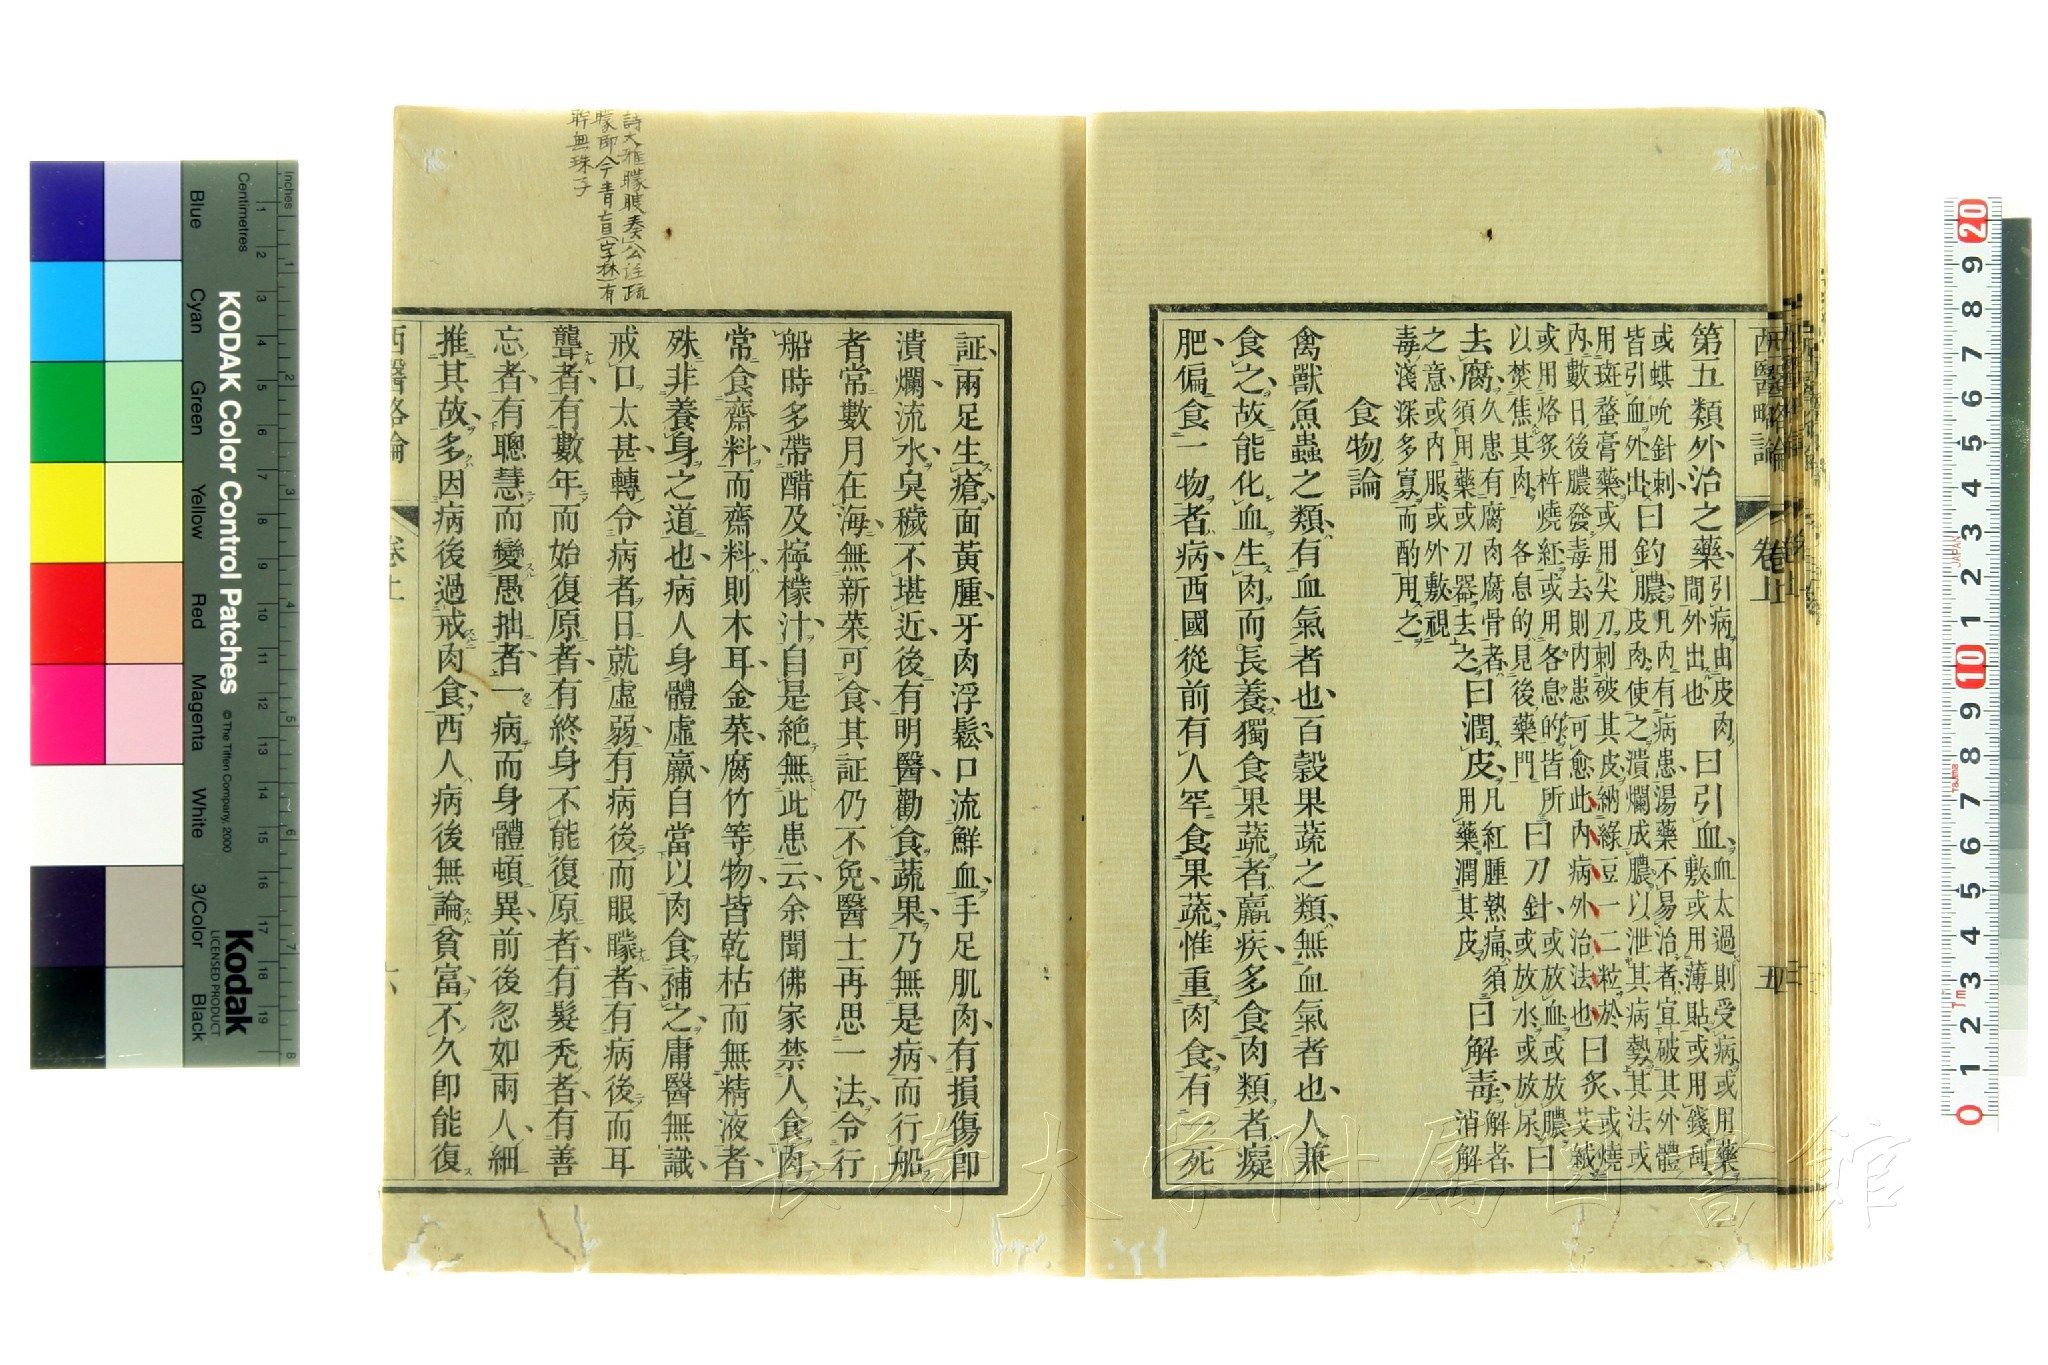 西醫略論 卷上 五
第五類外治之藥引病由皮肉間外出也曰引血血太過則受病或用藥敷或用薄貼或用錢刮
或蜞吮針刺皆引血外出曰釣膿凡内有病患湯藥不易治者宜破其外體皮肉使之潰爛成膿以泄其病勢其法或
用斑蝥膏藥或用尖刀刺破其皮納綠豆一二粒於内數日後膿發毒去則内患可愈此内病外治法也曰炙或燒艾緘
或用烙炙杵燒紅或用各息的皆所以焚焦其肉各息的見後藥門曰刀針或放血或放膿或放水或放尿曰
去腐久患有腐肉腐骨者須用藥或刀器去之曰潤皮凡紅腫熱痛須用藥潤其皮曰解毒解者消解
之意或内服或外敷視毒淺深多寡而酌用之
食物論
禽獸魚蟲之類有血氣者也百穀果蔬之類無血氣者也人兼
食之故能化血生肉而長養獨食果蔬者羸疾多食肉類者癡
肥偏食一物者病西國從前有人罕食果蔬惟重肉食有一死
証兩足生瘡面黃腫牙肉浮鬆口流鮮血手足肌肉有損傷卽
潰爛流水臭穢不堪近後有明醫勸食蔬果乃無是病而行船
者常數月在海無新菜可食其証仍不免醫士再思一法令行
船時多帶醋及檸檬汁自是絶無此患云余聞佛家禁人食肉
常食齋料而齋料則木耳金菜腐竹等物皆乾枯而無精液者
殊非養身之道也病人身體虛羸自當以肉食補之庸醫無識
戒口太甚轉令病者日就虛弱有病後而眼矇者有病後而耳
聾者有數年而始復原者有終身不能復原者有髮禿者有善
忘者有聰慧而變愚拙者一病而身體頓異前後忽如兩人細
推其故多因病後過戒肉食西人病後無論貧富不久卽能復
西醫略論 卷上 六
詩大雅矇瞍奏公注疏
矇卽今青盲字林有
眸無珠子
長崎大学附属図書館